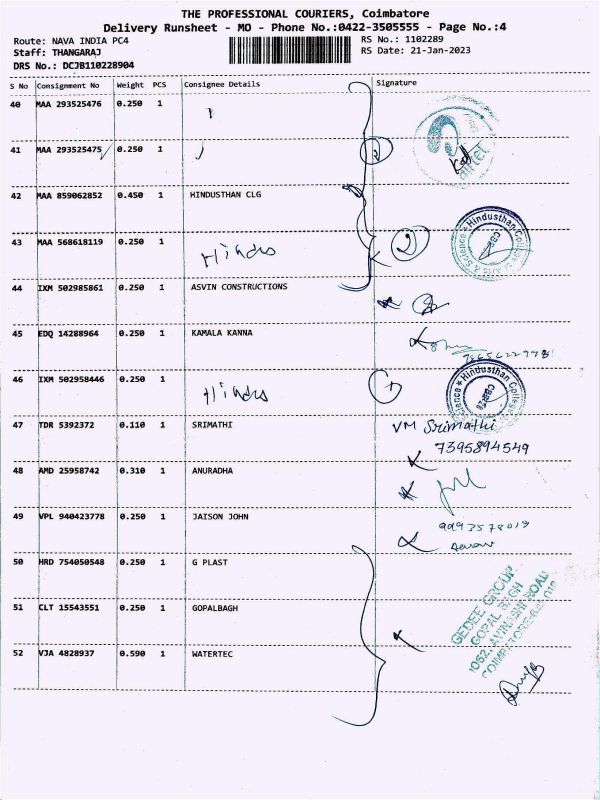 THE PROFESSIONAL COURIERS, Coimbatore
Delivery Runsheet - MO - Phone No.:0422-3505555 - - Page No.:4
Route: NAVA INDIA PC4 RS No.: 1102289
Staff: THANGARAJ RS Date: 21-Jan-2023
DRS No.: DCJB110228904
S No Consignment No Weight PCS Consignee Details Signature
40 MAA 293525476 0.250 1
airtel
41 MAA 293525475 0.250 1 2
42 MAA 859062852 0.450 1 HINDUSTHAN CLG
43 MAA 568618119 0.250 1 Hindus 2
Hindusthan College of Arts & Science
44 IXM 502985861 0.250 1 ASVIN CONSTRUCTIONS
45 EDQ 14288964 0.250 1 KAMALA KANNA
46 IXM 502958446 0.250 1 Hindus
Hindusthan College
47 TDR 5392372 0.110 1 SRIMATHI VM Srimathi
7395894549
48 AMD 25958742 0.310 1 ANURADHA
49 VPL 940423778 0.250 1 JAISON JOHN
50 HRD 754050548 0.250 1 G PLAST
51 CLT 15543551 0.250 1 GOPALBAGH
52 VJA 4828937 0.590 1 WATERTEC
GEDEE GROUP
GOPAL BAGH
1052, AVINASHI ROAD